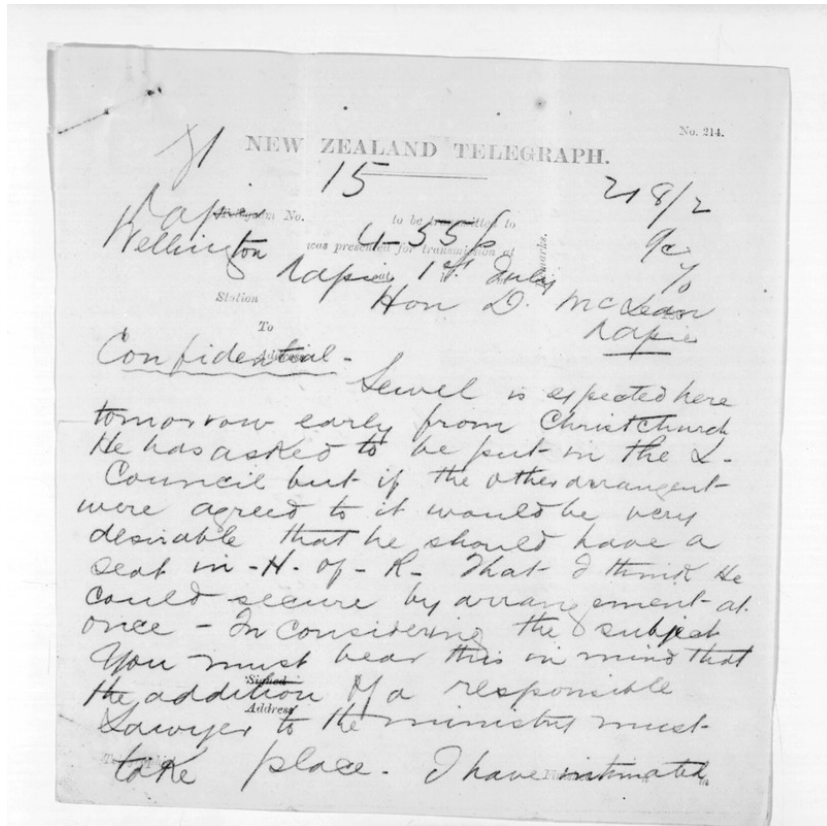 No. 214.
NEW ZEALAND TELEGRAPH.
15
21 8/2
Napier No. to be transmitted to
Wellington was presented for transmission at 4-55 p
Napier 1st July
Station Hon D. McLean
To Napier
Confidential -
Sewel is expected here
tomorrow early from ChristChurch
He has asked to be put in the L-
Council but if the other arrangent
were agreed to it would be very
desirable that he should have a
seat in -H- of - R- That I think He
could secure by arrangement at
once - In considering the subject
You must bear this in mind that
Signed
the addition of a responsible
Address
Lawyer to the ministry must
take place. I have intimated